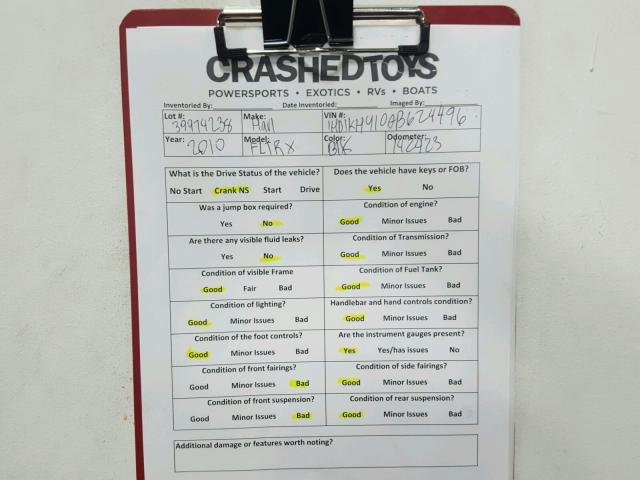 CRASHEDTOYS
POWERSPORTS • EXOTICS • RVs • BOATS
Inventoried By: Date Inventoried: Imaged By:
Lot #: 39974238 Make: Harl VIN #:
Year: 2010 Model: FLTRX Color: Blk Odometer:
What is the Drive Status of the vehicle? Does the vehicle have keys or FOB?
No Start Crank NS Start Drive Yes No
Was a jump box required? Condition of engine?
Yes No Good Minor Issues Bad
Are there any visible fluid leaks? Condition of Transmission?
Yes No Good Minor Issues Bad
Condition of visible Frame Condition of Fuel Tank?
Good Fair Bad Good Minor Issues Bad
Condition of lighting? Handlebar and hand controls condition?
Good Minor Issues Bad Good Minor Issues Bad
Condition of the foot controls? Are the instrument gauges present?
Good Minor Issues Bad Yes Yes/has issues No
Condition of front fairings? Condition of side fairings?
Good Minor Issues Bad Good Minor Issues Bad
Condition of front suspension? Condition of rear suspension?
Good Minor Issues Bad Good Minor Issues Bad
Additional damage or features worth noting?